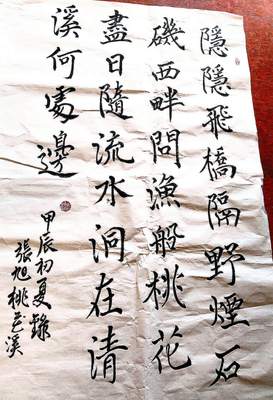 隱隱飛橋隔野煙石
磯西畔問漁船桃花
盡日隨流水洞在清
溪何處邊
甲辰初夏錄
張旭桃花溪